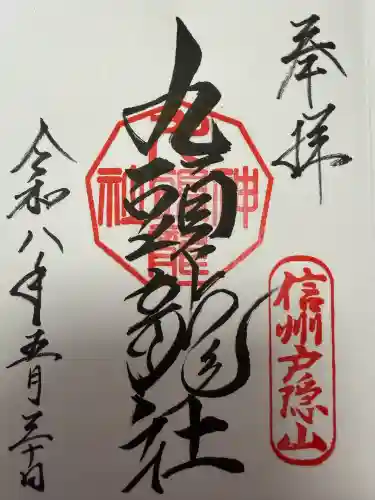 奉拝
信州戸隠山
九頭龍社
令和八年五月三十日